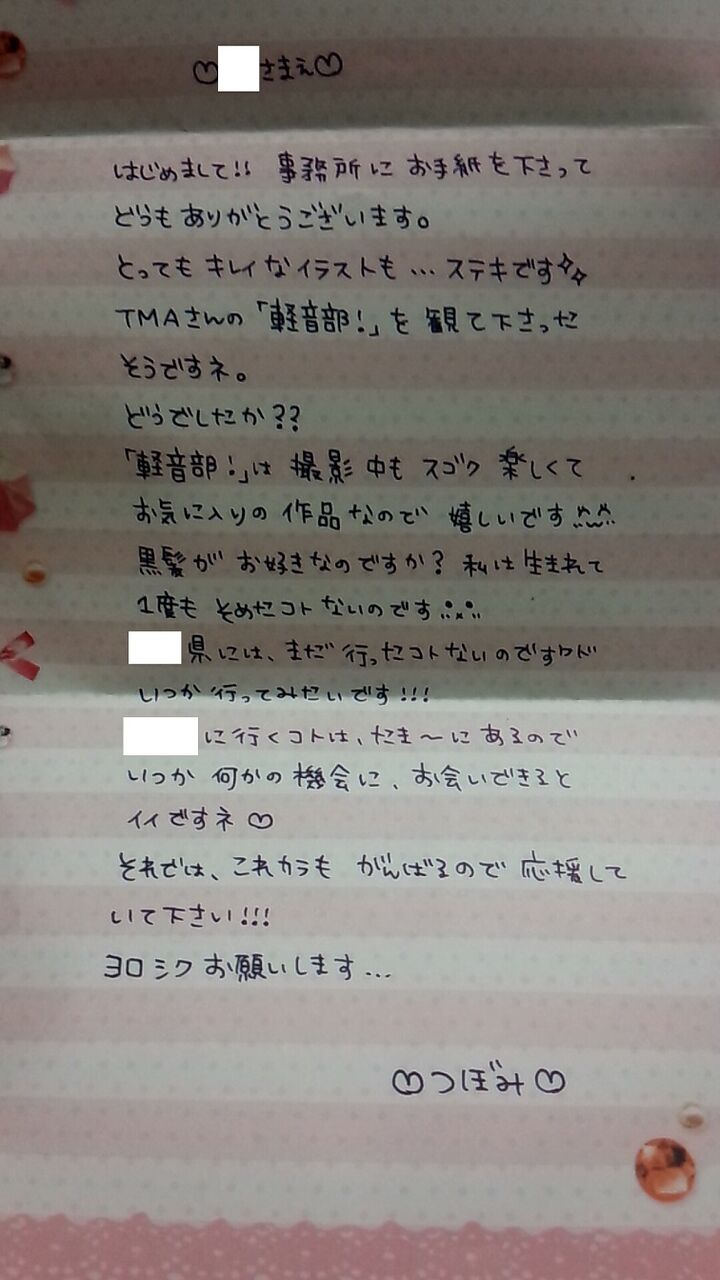 ♡ さまえ♡
はじめまして!! 事務所に お手紙を下さって
どうもありがとうございます。
とっても キレイなイラストも…ステキです
TMAさんの「軽音部!」を 観て下さった
そうですネ。
どうでしたか??
「軽音部!」は 撮影 中も スゴク 楽しくて
お気に入りの 作品なので 嬉しいです
黒髪が お好きなのですか? 私は生まれて
1度も そめたコトないのです
県には、まだ 行ったコトないのですケド
いつか 行ってみたいです!!!
に行くコトは、たま〜に あるので
いつか 何かの 機会に、お会いできると
イイですネ♡
それでは、これカラも がんばるので 応援して
いて下さい!!!
ヨロシク お願いします…
♡つぼみ♡